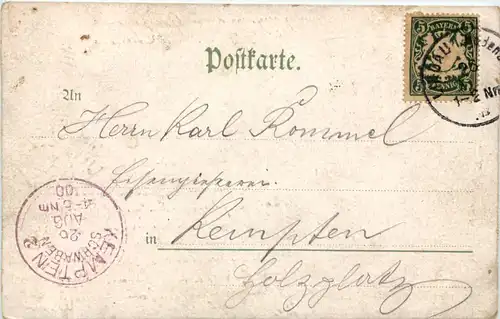 Postkarte.
5 BAYERN 5
1-2 Nm
An
Herrn Karl Rommel
Eisengiesserei
in Kempten
Holzplatz
KEMPTEN 2
SCHWABEN
26
AUG
4-5 NM
00